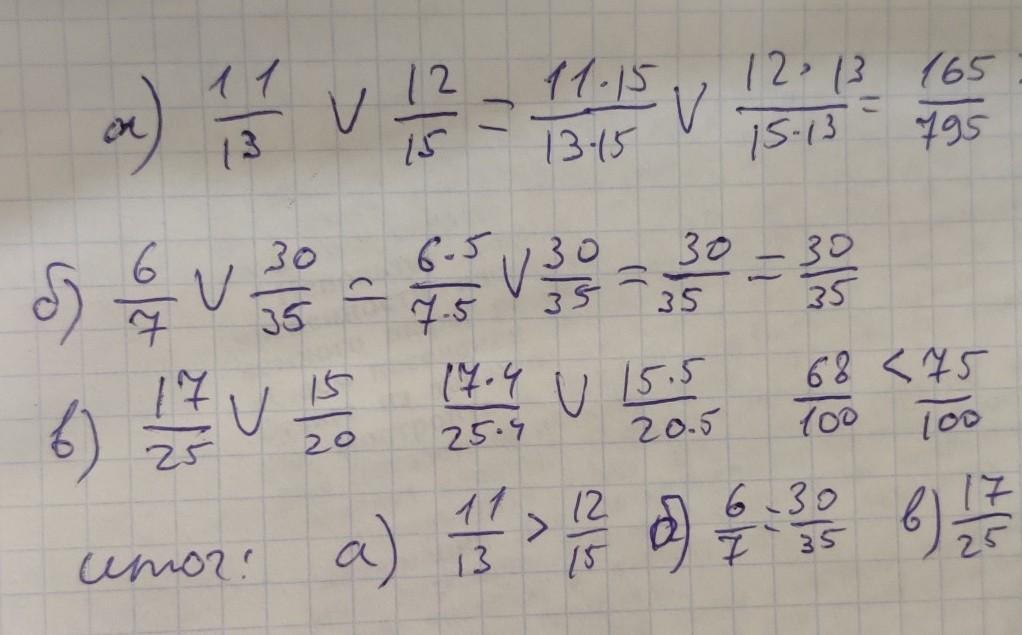 а) 11/13 V 12/15 = 11·15/13·15 V 12·13/15·13 = 165/795
б) 6/7 V 30/35 = 6·5/7·5 V 30/35 = 30/35 = 30/35
в) 17/25 V 15/20 17·4/25·4 V 15·5/20·5 68/100 < 75/100
итог: а) 11/13 > 12/15 б) 6/7 = 30/35 в) 17/25